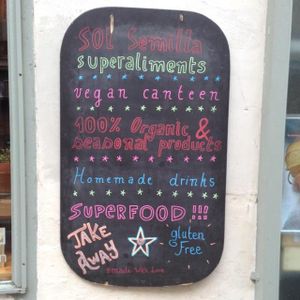 SOL Semilla
superaliments
vegan canteen
100% Organic &
seasonal products
Homemade drinks
SUPERFOOD !!!
TAKE AWAY
gluten Free
made With Love